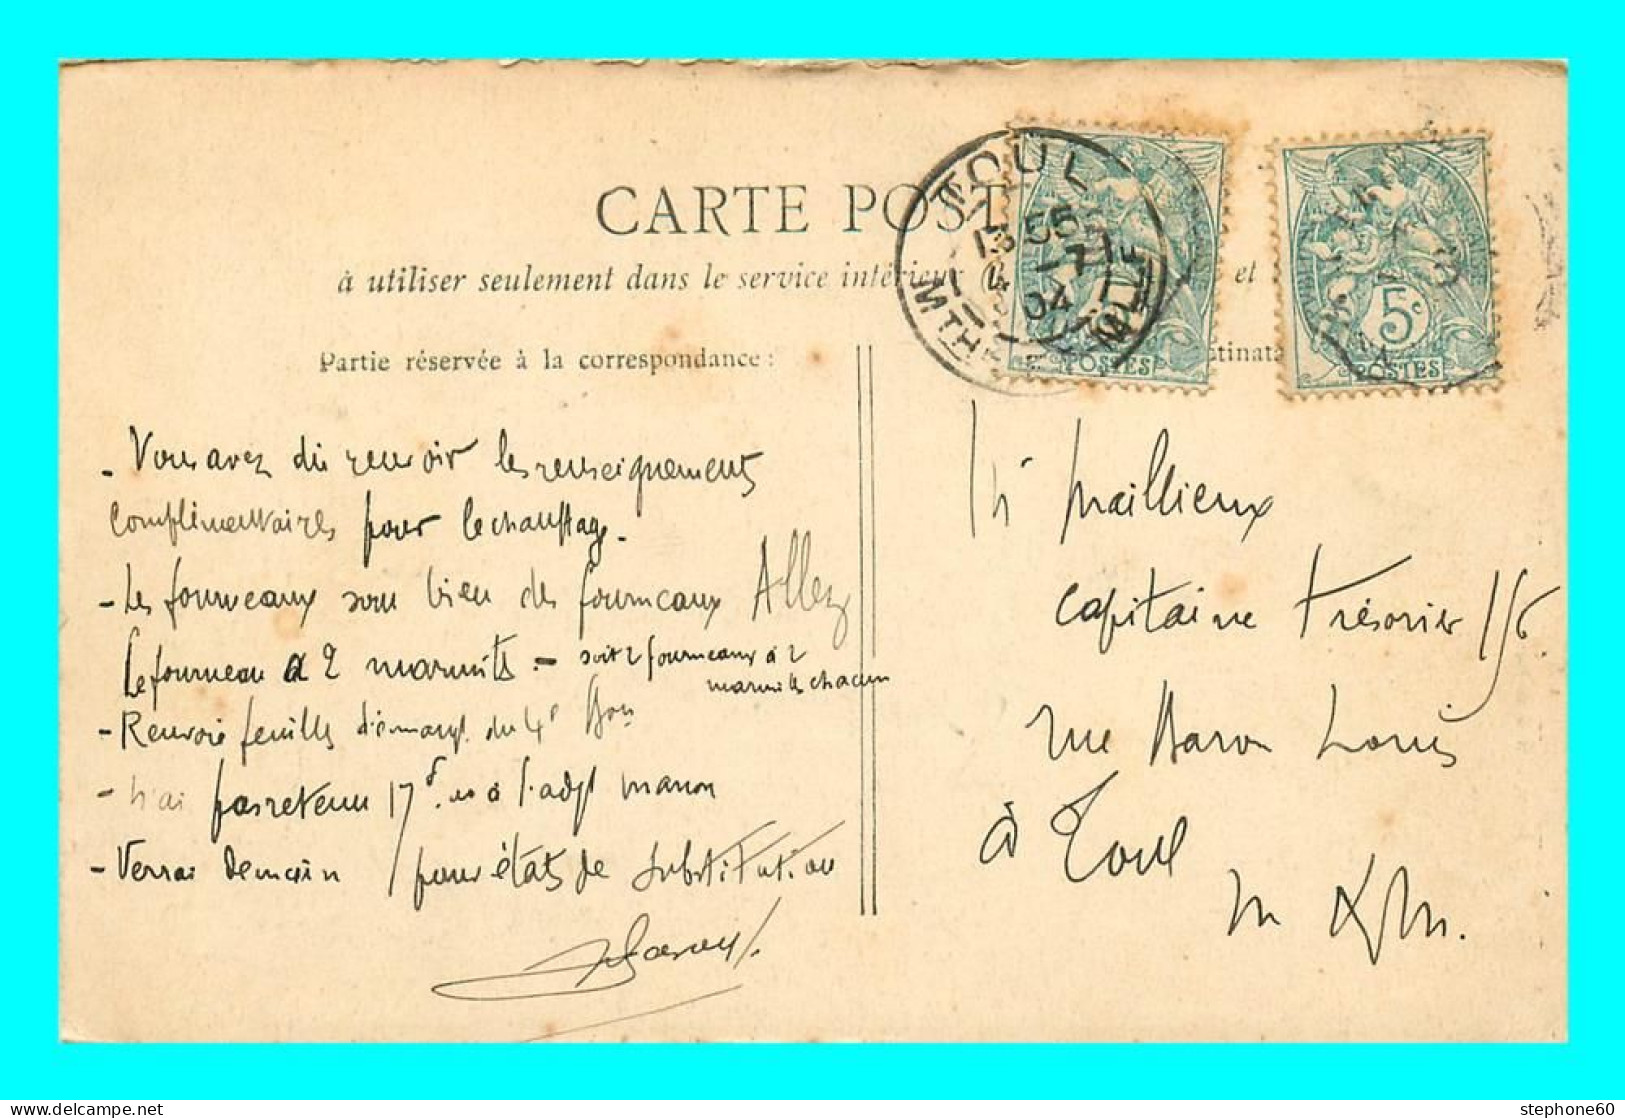 CARTE POST
à utiliser seulement dans le service intérieur et
Partie réservée à la correspondance :
TOUL
13 55
-7
04
POSTES
5c
POSTES
- Vous avez dû recevoir les renseignements
complémentaires pour le chauffage.
- Les fourneaux sont bien des fourneaux Allez
Le fourneau à 2 marmites. - soit 2 fourneaux à 2
marmites chacun
- Renvoie feuilles d'émarg.t du 4e Bon
- N'ai pas retenu 17f. à l'adjt
- Verrai demain / pour états de substitution
Mr Maillieux
Capitaine Trésorier 156
rue Baron Louis
à Toul
M & M.
stephone60